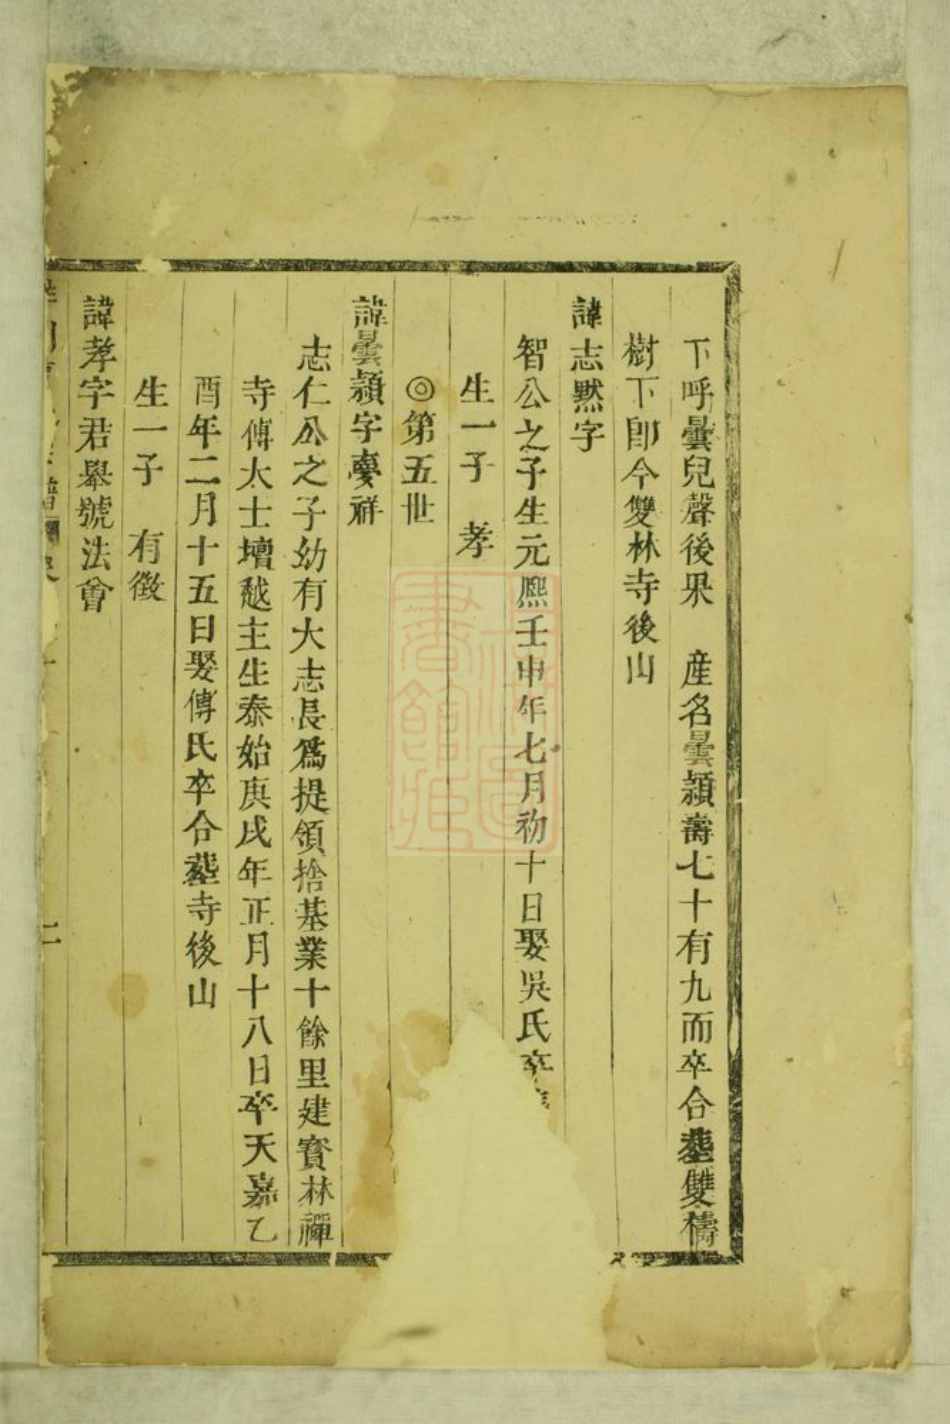 下呼曇兒聲後果　産名曇穎壽七十有九而卒合塟雙檮
樹下卽今雙林寺後山
諱志黙字
智公之子生元熈壬申年七月初十日娶吳氏卒
生一子　孝
◎第五世
諱曇穎字夢祥
志仁公之子幼有大志長爲提領捨基業十餘里建寳林禪
寺傅大士壇越主生泰始庚戌年正月十八日卒天嘉乙
酉年二月十五日娶傅氏卒合塟寺後山
生一子　有徵
諱孝字君舉號法會